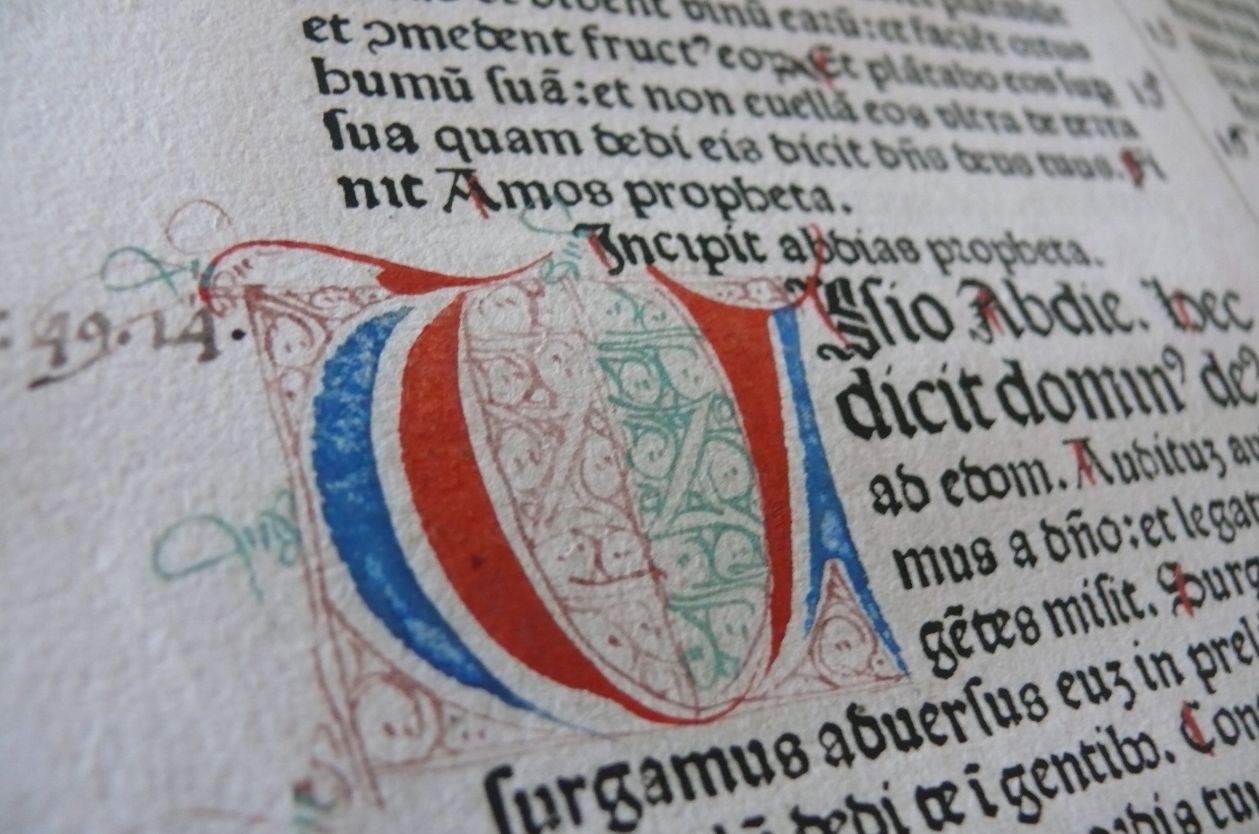 et ꝯmedent fruct⁹ eoꝝ. Et plãtabo eos sup
humũ ſuã: et non euellã eos vltra de terra
ſua quam dedi eis dicit dñs deus tuus. Fi
nit Amos propheta.
Incipit abdias propheta.
VIſio Abdie. Hec
49.14.
dicit domin⁹ de⁹
ad edom. Audituꝫ au
mus a dño: et legat
gẽtes miſit. Surg
ſurgamus aduerſus euꝫ in prel
dedi te ĩ gentibꝰ. Con